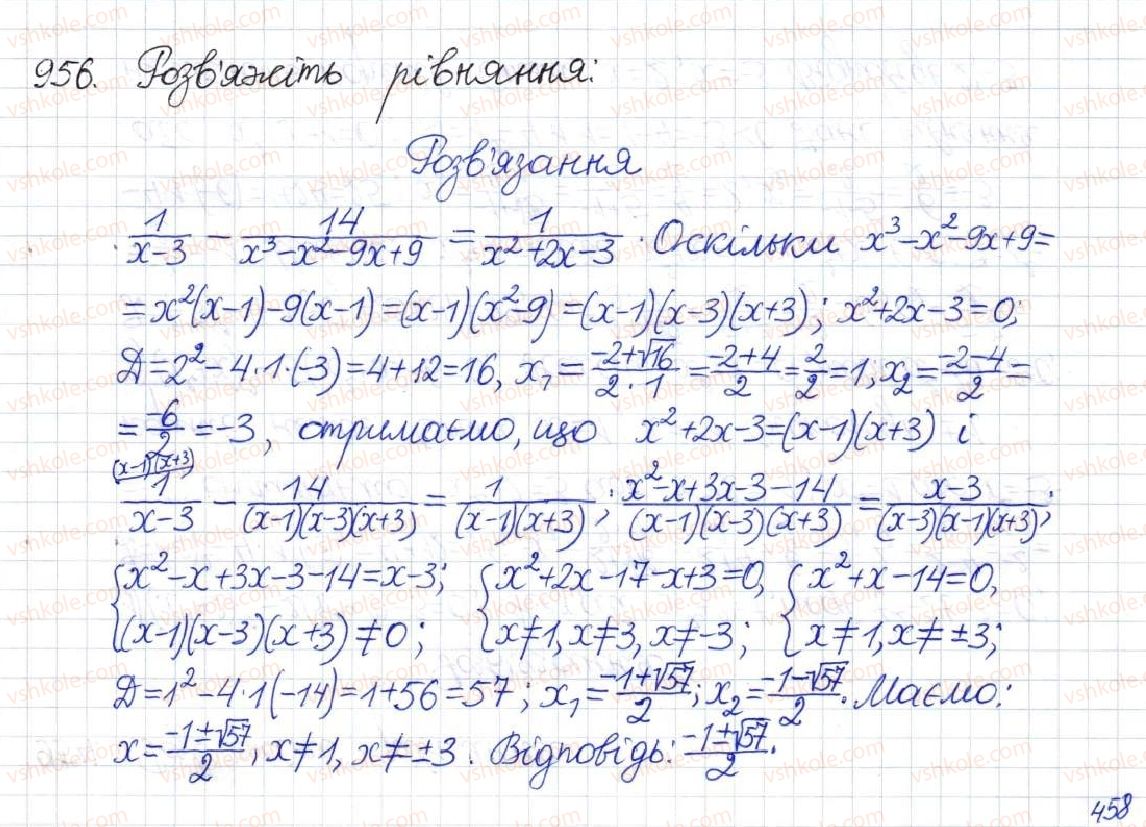 956. Розв'яжіть рівняння:
Розв'язання
1/(x-3) - 14/(x³-x²-9x+9) = 1/(x²+2x-3). Оскільки x³-x²-9x+9=
=x²(x-1)-9(x-1)=(x-1)(x²-9)=(x-1)(x-3)(x+3); x²+2x-3=0;
Д=2²-4·1·(-3)=4+12=16, x₁=(-2+√16)/(2·1)=(-2+4)/2=2/2=1; x₂=(-2-4)/2=
=-6/2=-3, отримаємо, що x²+2x-3=(x-1)(x+3) і
(x-1)(x+3)
1/(x-3) - 14/((x-1)(x-3)(x+3)) = 1/((x-1)(x+3)); (x²-x+3x-3-14)/((x-1)(x-3)(x+3)) = (x-3)/((x-3)(x-1)(x+3));
{x²-x+3x-3-14=x-3; {x²+2x-17-x+3=0, {x²+x-14=0,
(x-1)(x-3)(x+3)≠0; x≠1, x≠3, x≠-3; x≠1, x≠±3;
Д=1²-4·1(-14)=1+56=57; x₁=(-1+√57)/2; x₂=(-1-√57)/2. Маємо:
x=(-1±√57)/2, x≠1, x≠±3. Відповідь: (-1±√57)/2.
458
vshkole.com